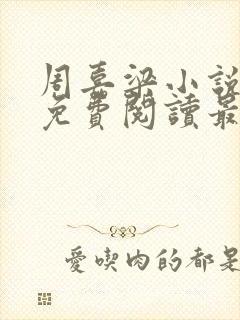 周喜梁小說
免費閱讀最
愛喫肉的都是